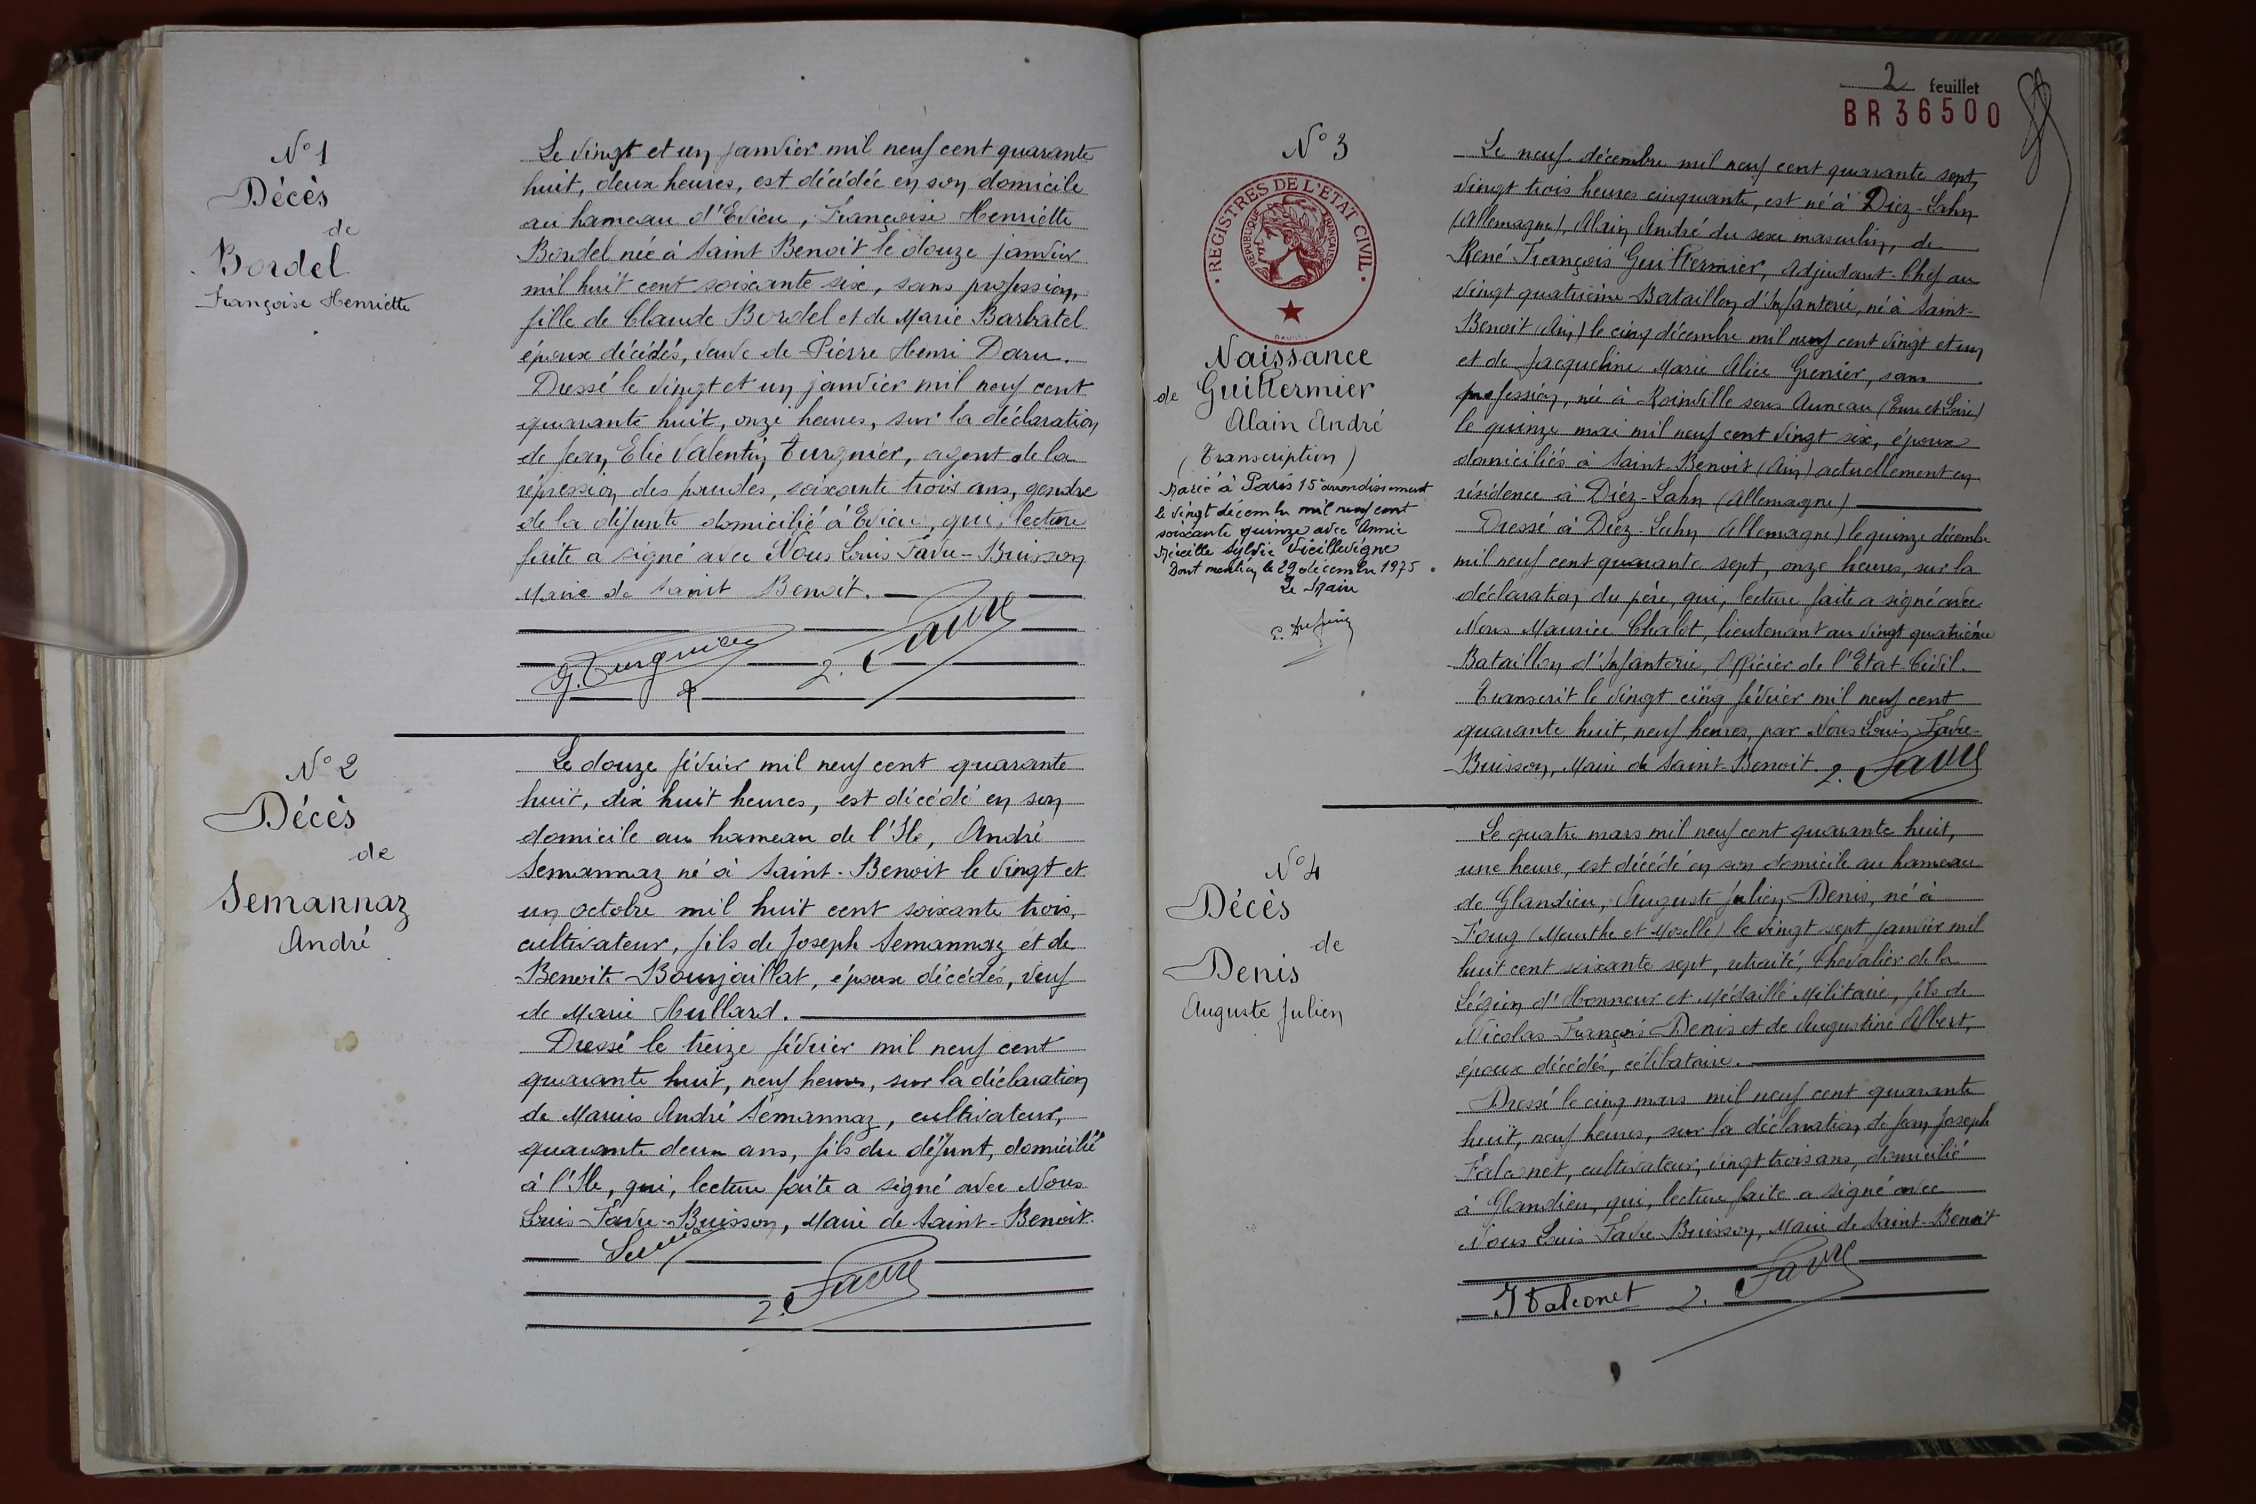 N° 1
Décès
de
Bordel
Françoise Henriette
Le vingt et un janvier mil neuf cent quarante
huit, deux heures, est décédée en son domicile
au hameau d'Evieu, Françoise Henriette
Bordel née à Saint Benoit le douze janvier
mil huit cent soixante six, sans profession,
fille de Claude Bordel et de Marie Barbatel
époux décédés, veuve de Pierre Henri Daru.
Dressé le vingt et un janvier mil neuf cent
quarante huit, onze heures, sur la déclaration
de Jean Elie Valentin Turgnier, agent de la
répression des fraudes, soixante trois ans, gendre
de la défunte domicilié à Evieu, qui, lecture
faite a signé avec Nous Louis Favre-Buisson
Maire de Saint Benoit.
Favre
N° 2
Décès
de
Semannaz
André
Le douze février mil neuf cent quarante
huit, dix huit heures, est décédé en son
domicile au hameau de l'Ile, André
Semannaz né à Saint-Benoit le vingt et
un octobre mil huit cent soixante trois,
cultivateur, fils de Joseph Semannaz et de
Benoite Bourjaillat, époux décédés, veuf
de Marie Hullard.
Dressé le treize février mil neuf cent
quarante huit, neuf heures, sur la déclaration
de Marius André Semannaz, cultivateur,
quarante deux ans, fils du défunt, domicilié
à l'Ile, qui, lecture faite a signé avec Nous
Louis Favre-Buisson, Maire de Saint-Benoit.
Favre
2 feuillet
BR36500
N° 3
REGISTRES DE L'ETAT CIVIL
REPUBLIQUE FRANÇAISE
Naissance
de Guittermier
Alain André
(Transcription)
Marié à Paris 15e arrondissement
le vingt décembre mil neuf cent
soixante quinze avec Annie
Mireille Sylvie Vieillevigne
Dont mention le 29 décembre 1975.
Le Maire
Le neuf décembre mil neuf cent quarante sept,
vingt trois heures cinquante, est né à Diez-Lahn
(Allemagne), Alain André du sexe masculin, de
René François Guittermier, Adjudant-Chef au
vingt quatrième Bataillon d'Infanterie, né à Saint-
Benoit (Ain) le cinq décembre mil neuf cent vingt et un
et de Jacqueline Marie Alice Grenier, sans
profession, née à Roinville sous Auneau (Eure et Loire)
le quinze mai mil neuf cent vingt six, époux
domiciliés à Saint-Benoit (Ain) actuellement en
résidence à Diez-Lahn (Allemagne)
Dressé à Diez-Lahn (Allemagne) le quinze décembre
mil neuf cent quarante sept, onze heures, sur la
déclaration du père, qui, lecture faite a signé avec
Nous Maurice Chalot, lieutenant au vingt quatrième
Bataillon d'Infanterie, Officier de l'Etat-Civil.
Transcrit le vingt cinq février mil neuf cent
quarante huit, neuf heures, par Nous Louis Favre-
Buisson, Maire de Saint-Benoit. Favre
N° 4
Décès
de
Denis
Auguste Julien
Le quatre mars mil neuf cent quarante huit,
une heure, est décédé en son domicile au hameau
de Glandieu, Auguste Julien Denis, né à
Foug (Meurthe et Moselle) le vingt sept janvier mil
huit cent soixante sept, retraité, Chevalier de la
Légion d'Honneur et Médaillé Militaire, fils de
Nicolas François Denis et de Augustine Albert,
époux décédés, célibataire.
Dressé le cinq mars mil neuf cent quarante
huit, neuf heures, sur la déclaration de Jean Joseph
Falconet, cultivateur, vingt trois ans, domicilié
à Glandieu, qui, lecture faite a signé avec
Nous Louis Favre Buisson, Maire de Saint-Benoit
J Falconet Favre